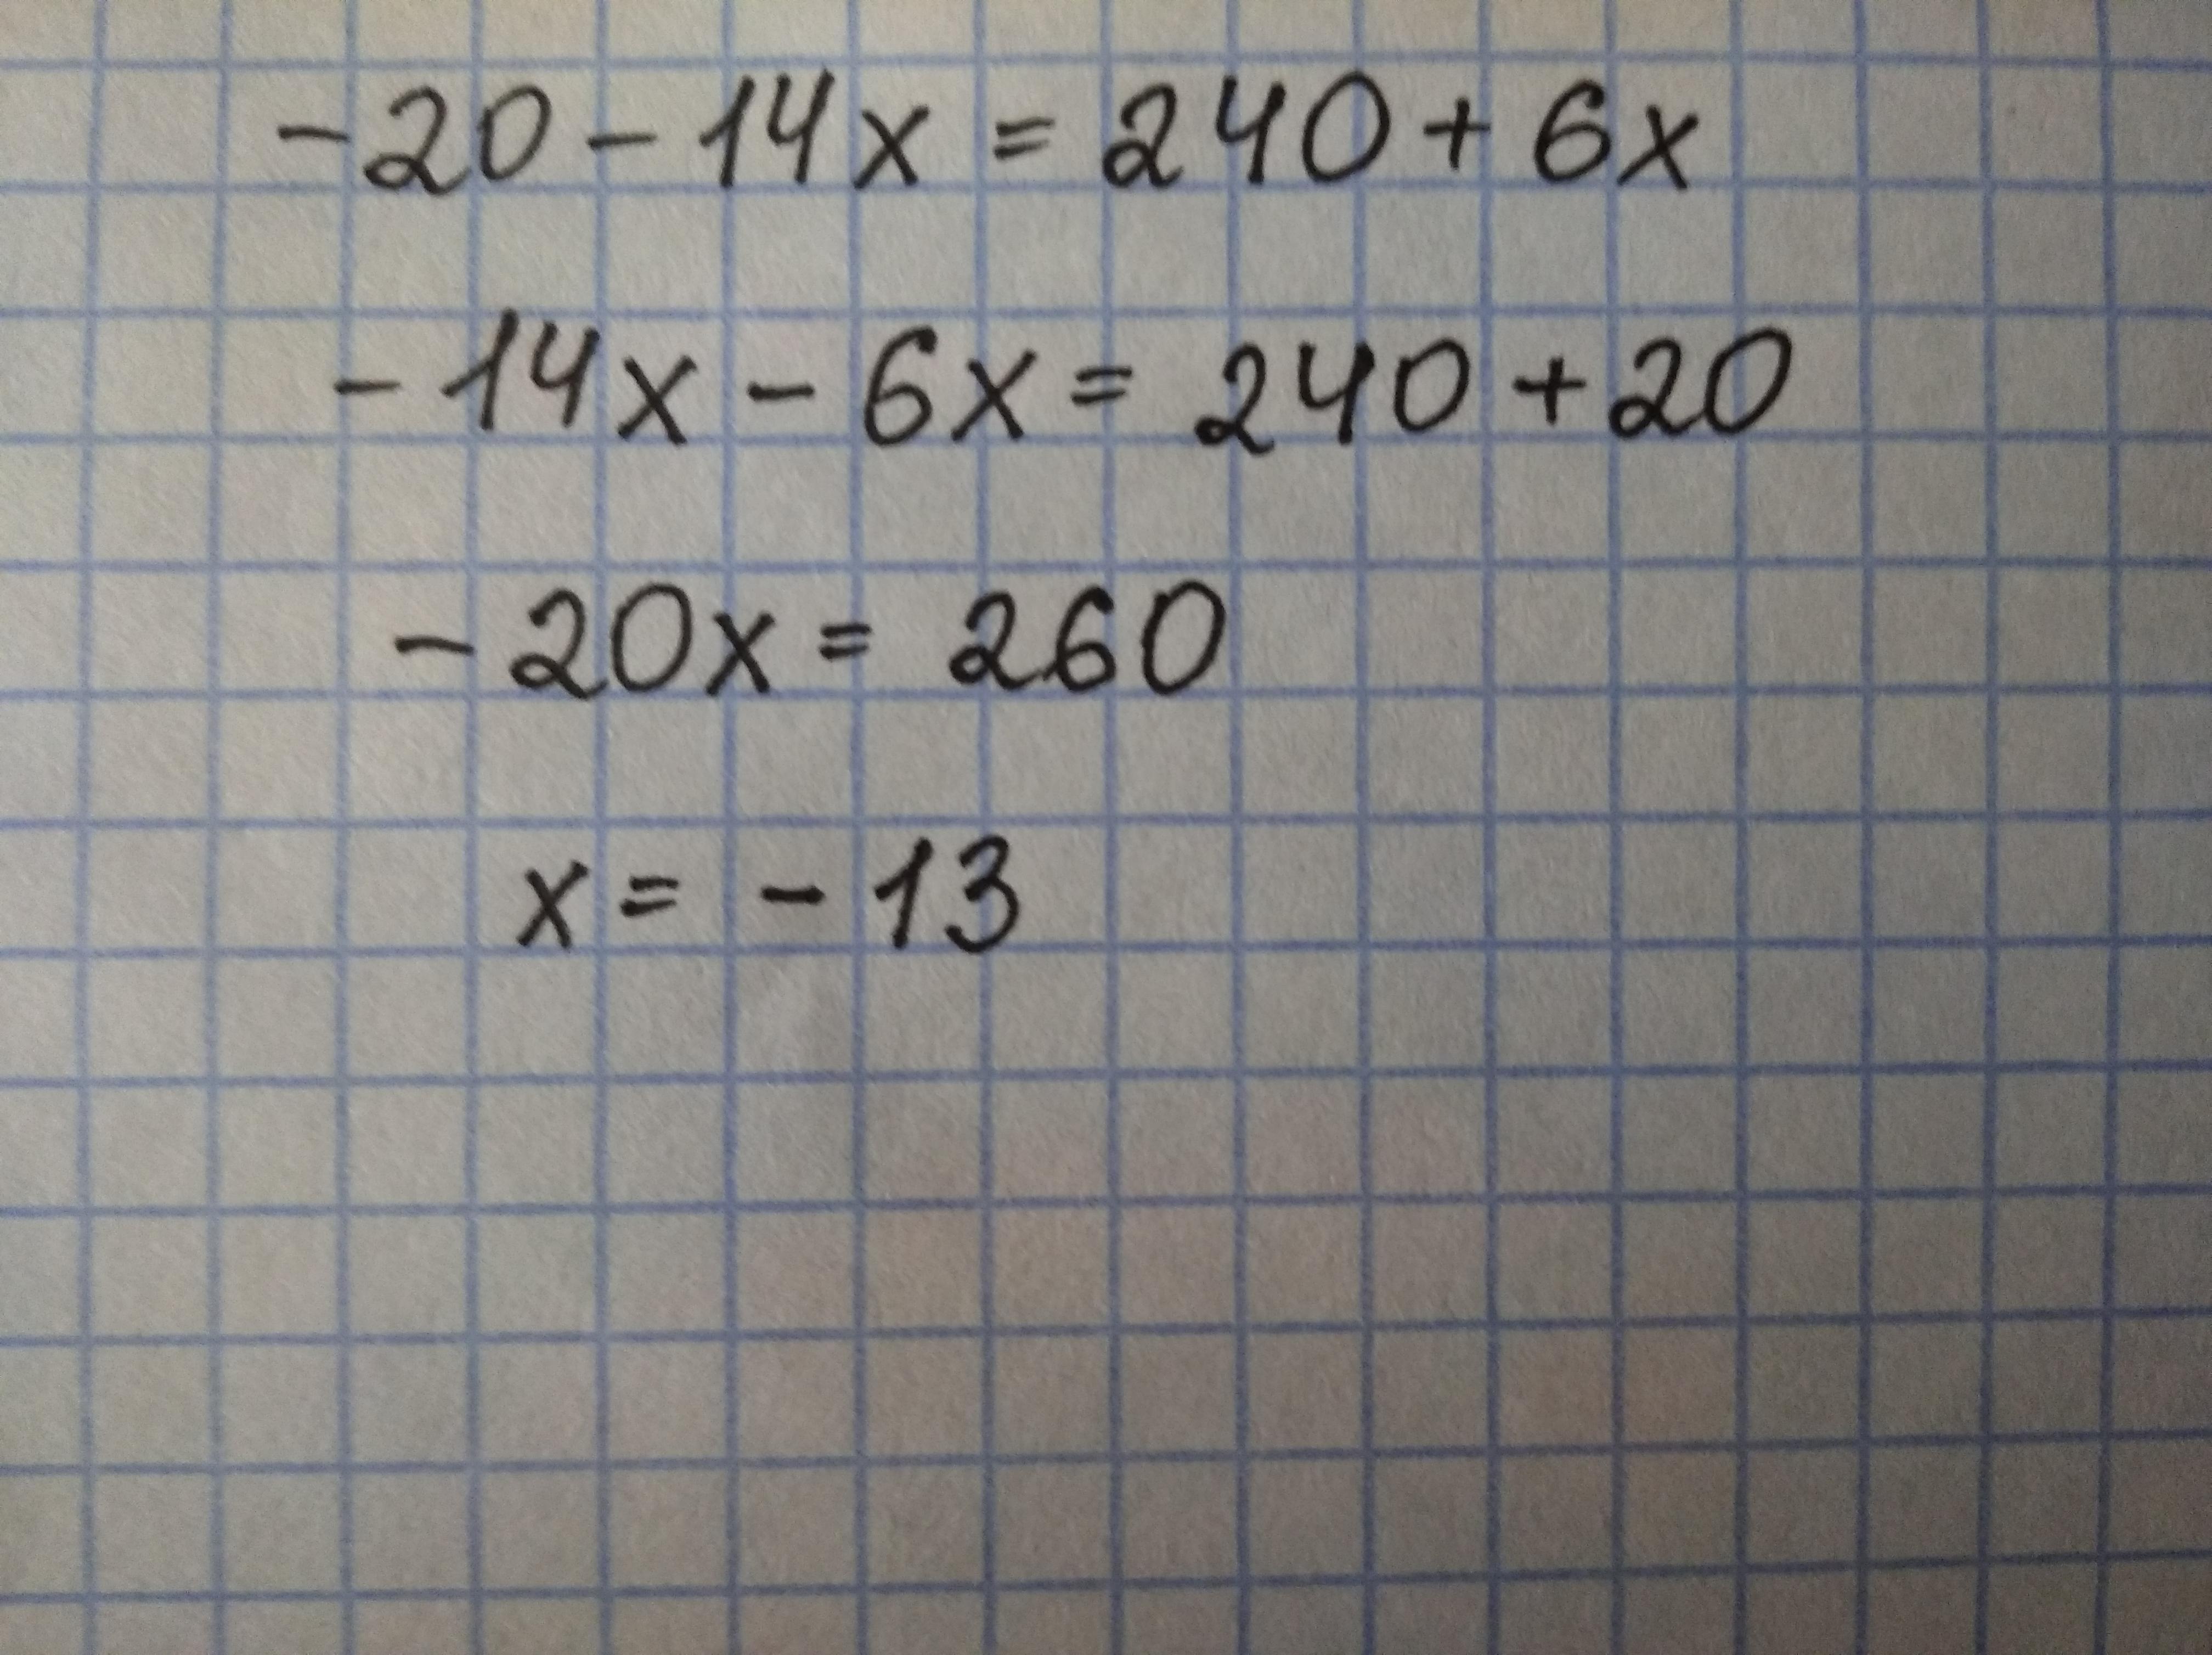 -20-14x = 240+6x
-14x-6x = 240+20
-20x = 260
x = -13